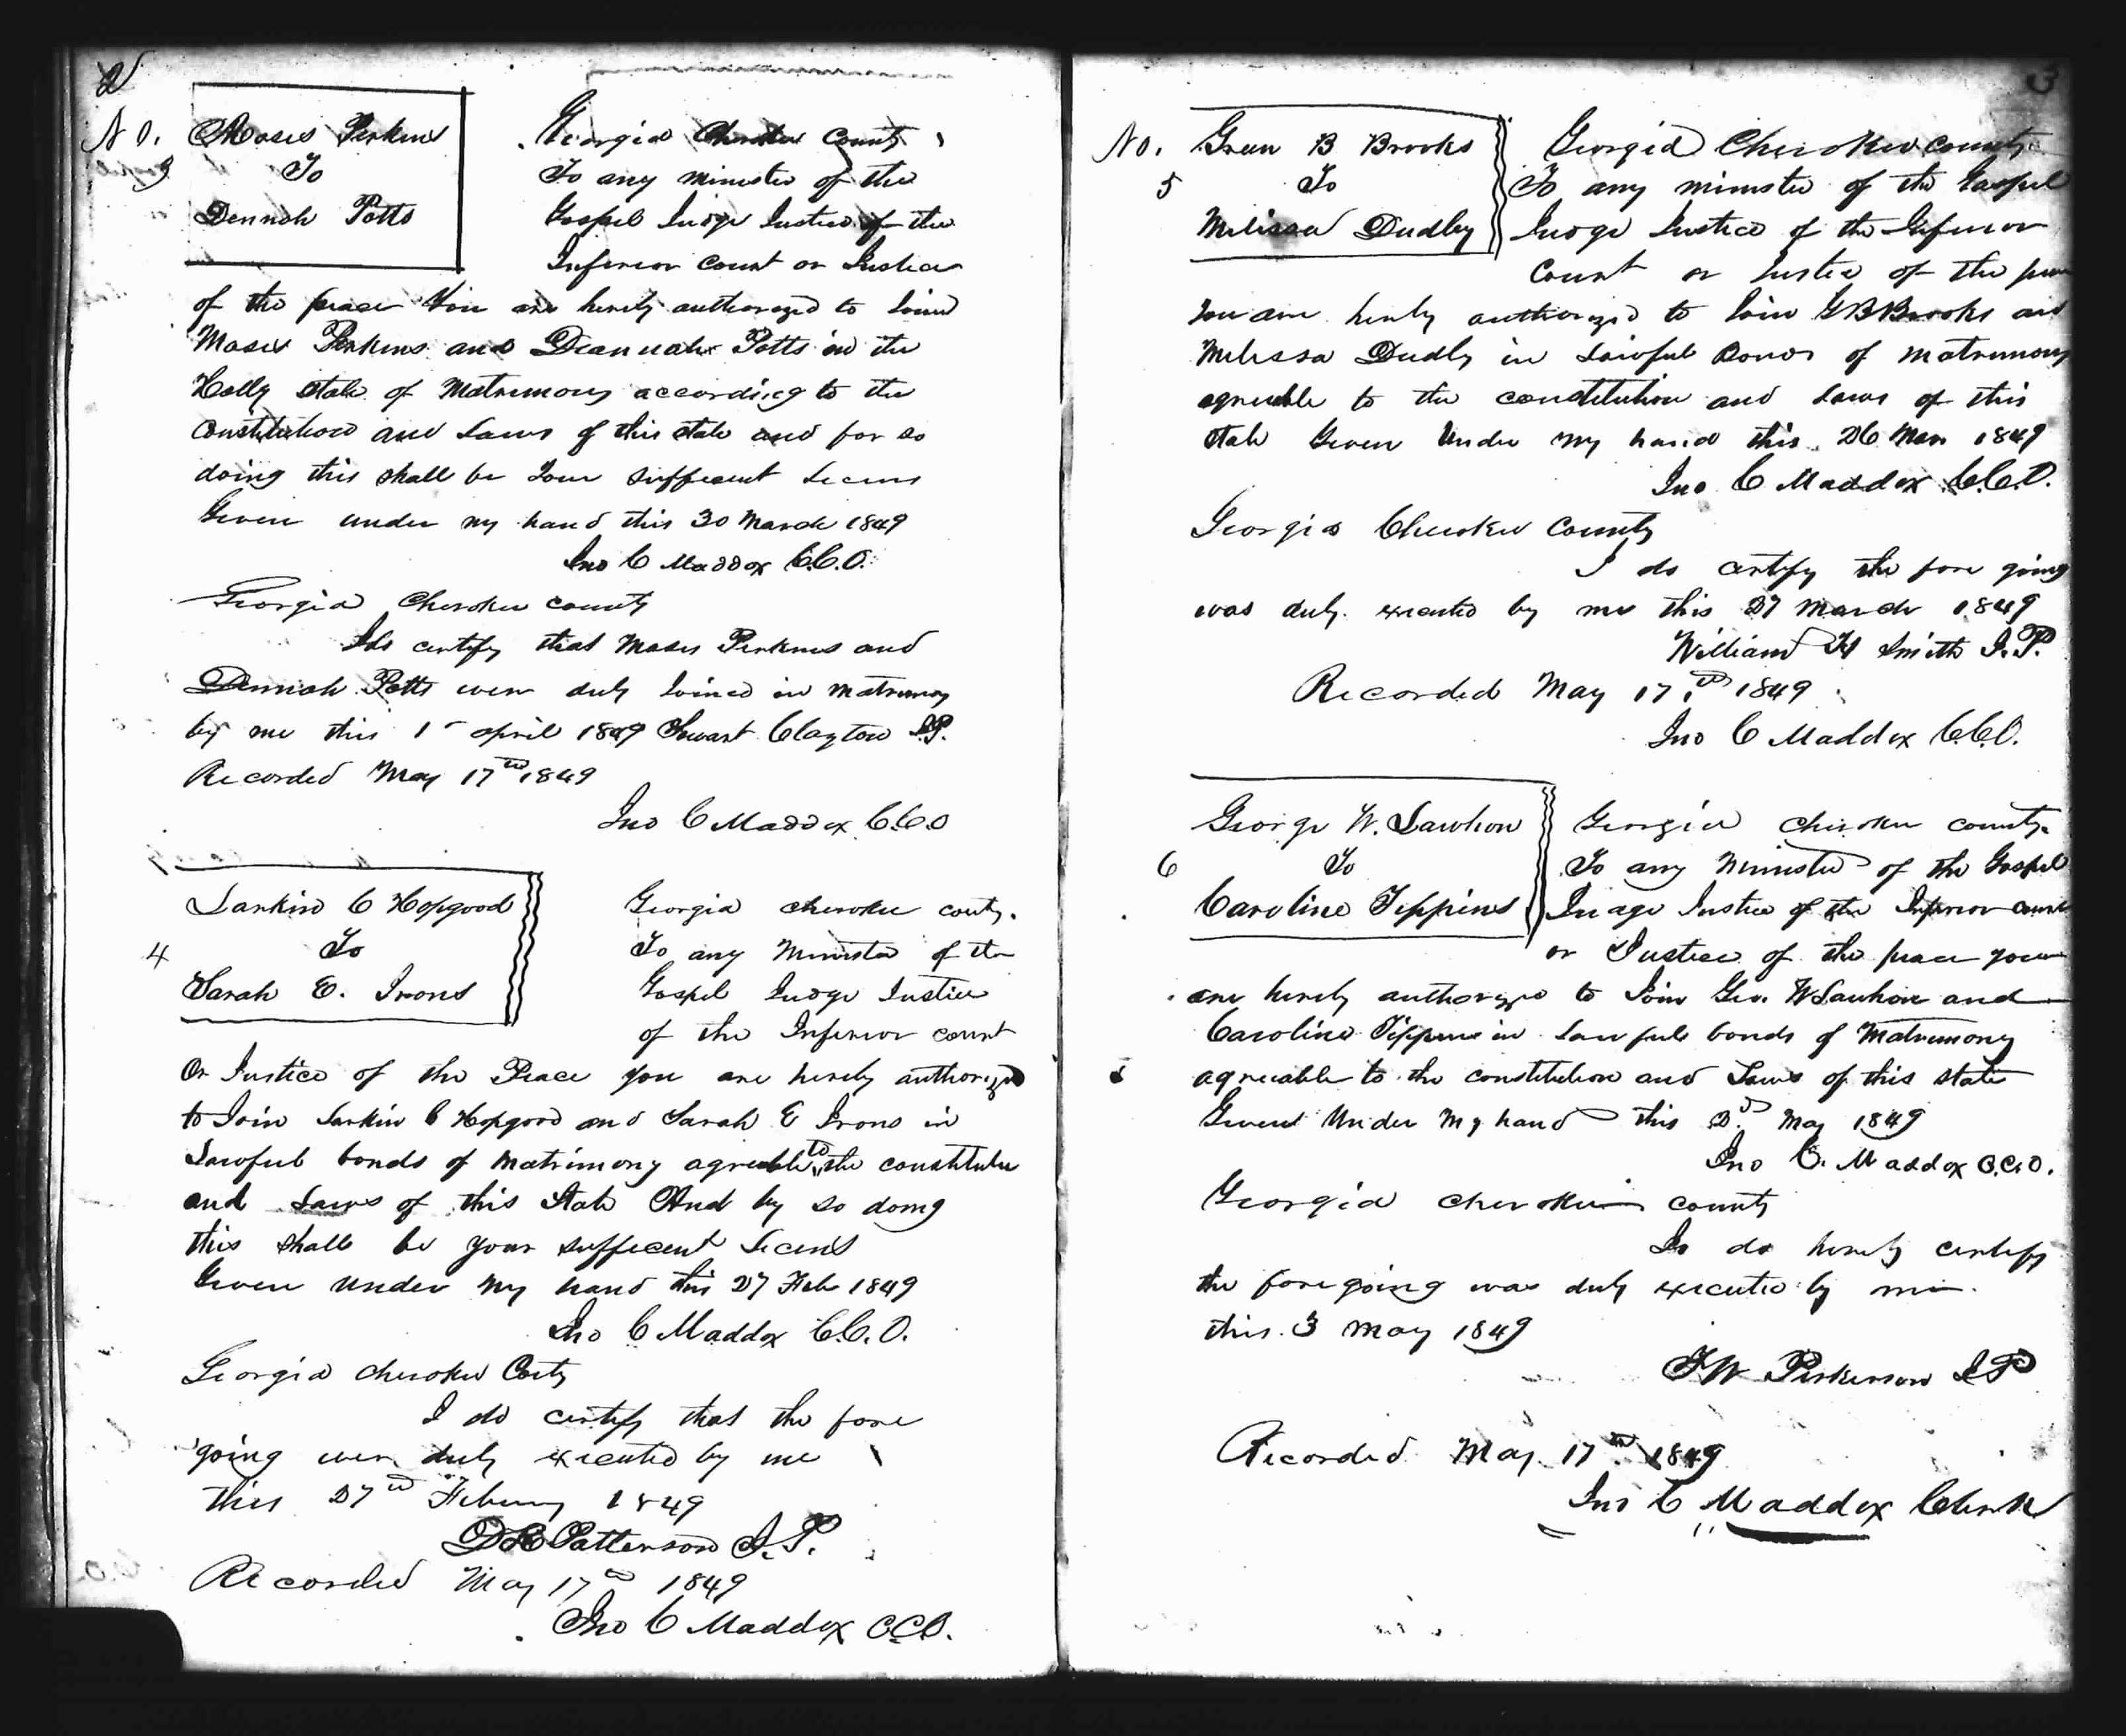 2
No. Moses Perkins
3 To
Dennah Potts
Georgia Cherokee County
To any minister of the
Gospel Judge Justice of the
Inferior Court or Justice
of the peace You are hereby authorized to Joind
Moses Perkins and Deannah Potts in the
Holly state of Matrimony according to the
Constitution and Laws of this state and for so
doing this shall be Your sufficent Licens
Given under my hand this 30 March 1849
Jno C Maddox C.C.O.
Georgia Cherokee county
I do certify that Moses Perkins and
Dennah Potts were duly Joined in matrimony
by me this 1 april 1849 Stwart Clayton J.P.
Recorded May 17th 1849
Jno C Maddox C.C.O
4
Larkin C Hopgood
To
Sarah E. Irons
Georgia cherokee couty.
To any Minister of the
Gospel Judge Justice
of the Inferior court
Or Justice of the Peace you are hereby authorized
to Join Larkin C Hopgood and Sarah E Irons in
Lawful bonds of matrimony agreeable to the constitution
and Laws of this State And by so doing
this shall be your sufficent Licens
Given under my hand this 27 Feb 1849
Jno C Maddox C.C.O.
Georgia cherokee Couty
I do certify that the fore
going were duly executed by me
this 27th 1849
Patterson J.P.
Recorded May 17th 1849
Jno C Maddox C.C.O.
3
No. Green B Brooks
5 To
Melissa Dudley
Georgia Cherokee county
To any minister of the Gospel
Judge Justice of the Inferior
Court or Justice of the
You are hereby authorized to Join G B Brooks and
Melissa Dudly in Lawful Bonds of matrimony
agreeable to the constitution and Laws of this
state Given Under my hand this 26 Mar 1849
Jno C Maddox C.C.O.
Georgia Cherokee County
I do certify the fore going
was duly executed by me this 27 March 1849
William H Smith J.P.
Recorded May 17th 1849
Jno C Maddox C.C.O.
6
George W. Lawhon
To
Caroline Tippins
Georgia cherokee county
To any Minister of the Gospel
Judge Justice of the Inferior court
or Justice of the peace you
are hereby authorized to Join Geo. W Lawhon and
Caroline Tippins in Lawful bonds of Matrimony
agreeable to the constitution and Laws of this state
Given Under My hand this 3d May 1849
Jno C. Maddox C.C.O.
Georgia cherokee county
I do hereby certify
the fore going was duly executed by me
this 3 May 1849
Perkerson J P
Recorded May 17th 1849
Jno C Maddox Clerk